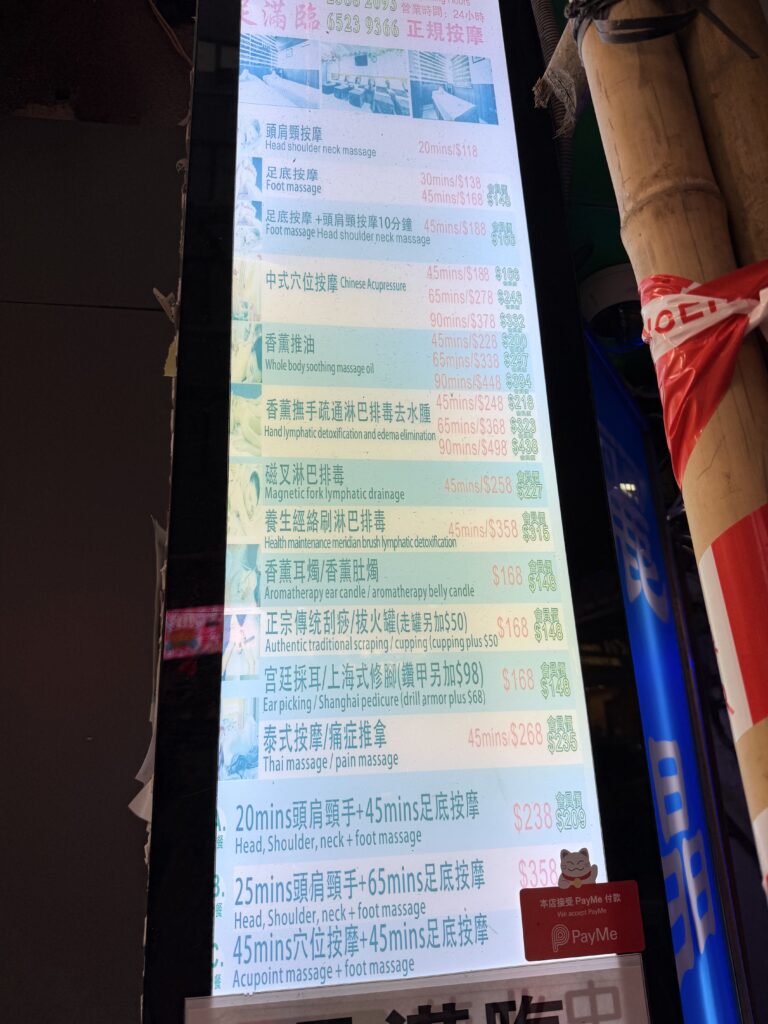 足滿臨
6523 9366
營業時間：24小時
正規按摩
頭肩頸按摩
Head shoulder neck massage
20mins/$118
足底按摩
Foot massage
30mins/$138
45mins/$168 會員價 $148
足底按摩 +頭肩頸按摩10分鐘
Foot massage Head shoulder neck massage
45mins/$188 會員價 $166
中式穴位按摩 Chinese Acupressure
45mins/$188 $166
65mins/$278 $246
90mins/$378 $332
香薰推油
Whole body soothing massage oil
45mins/$228 $200
65mins/$338 $297
90mins/$448 $394
香薰撫手疏通淋巴排毒去水腫
Hand lymphatic detoxification and edema elimination
45mins/$248 $218
65mins/$368 $323
90mins/$498 $438
磁叉淋巴排毒
Magnetic fork lymphatic drainage
45mins/$258 會員價 $227
養生經絡刷淋巴排毒
Health maintenance meridian brush lymphatic detoxification
45mins/$358 會員價 $315
香薰耳燭/香薰肚燭
Aromatherapy ear candle / aromatherapy belly candle
$168 會員價 $148
正宗傳統刮痧/拔火罐(走罐另加$50)
Authentic traditional scraping / cupping (cupping plus $50
$168 會員價 $148
宮廷採耳/上海式修腳(鑽甲另加$98)
Ear picking / Shanghai pedicure (drill armor plus $68)
$168 會員價 $148
泰式按摩/痛症推拿
Thai massage / pain massage
45mins/$268 會員價 $235
A.餐
20mins頭肩頸手+45mins足底按摩
Head, Shoulder, neck + foot massage
$238 會員價 $209
B.餐
25mins頭肩頸手+65mins足底按摩
Head, Shoulder, neck + foot massage
$358
C.餐
45mins穴位按摩+45mins足底按摩
Acupoint massage + foot massage
本店接受 PayMe 付款
We accept PayMe
PayMe
足滿臨
中